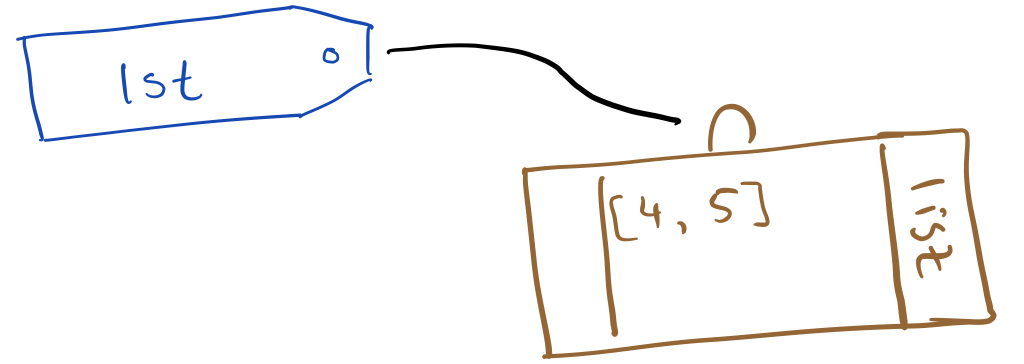 lst
[4, 5]
list